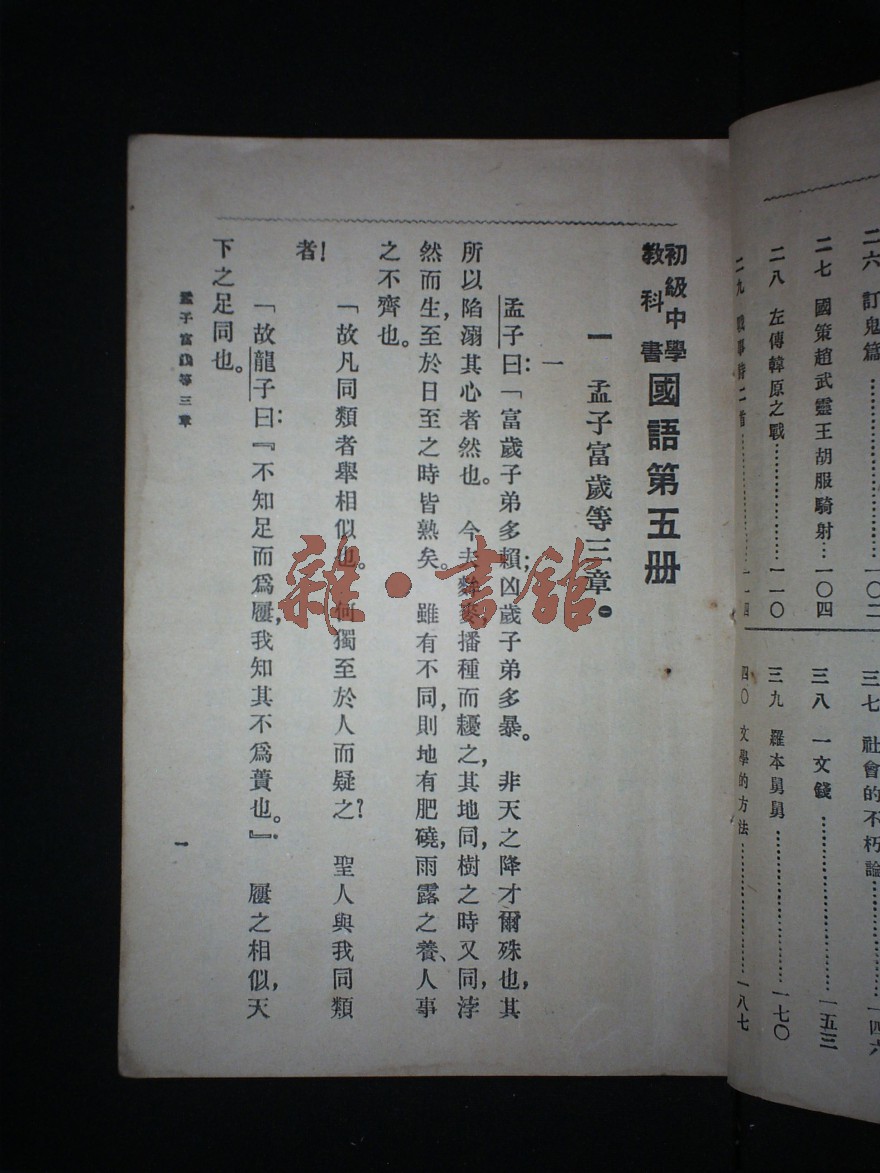 二六 訂鬼篇……一〇二
二七 國策趙武靈王胡服騎射…一〇四
二八 左傳韓原之戰……一一〇
二九 戰事詩二首……一一四
三七 社會的不朽論……一四六
三八 一文錢……一五三
三九 羅本舅舅……一七〇
四〇 文學的方法……一八七
初級中學教科書 國語第五册
一 孟子富歲等三章。㊀
一
孟子曰：「富歲子弟多賴；凶歲子弟多暴。非天之降才爾殊也，其
所以陷溺其心者然也。今夫麰麥，播種而耰之，其地同，樹之時又同，浡
然而生，至於日至之時皆熟矣。雖有不同，則地有肥磽，雨露之養、人事
之不齊也。
「故凡同類者舉相似也。何獨至於人而疑之？聖人與我同類
者！
「故龍子曰：『不知足而爲屨，我知其不爲蕢也。』屨之相似，天
下之足同也。
孟子富歲等三章
一
雜·書館